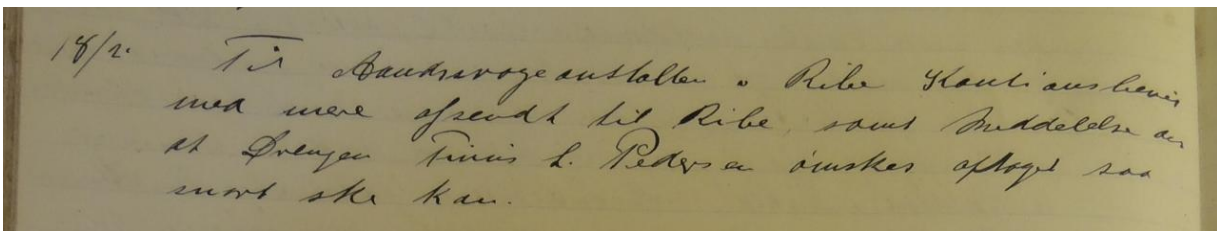 18/2. Til Aandssvageanstalten i Ribe Kautionsbevis
med mere afsendt til Ribe, samt Meddelelse om
at Drengen Tinus L. Pedersen ønskes optaget saa
snart ske kan.